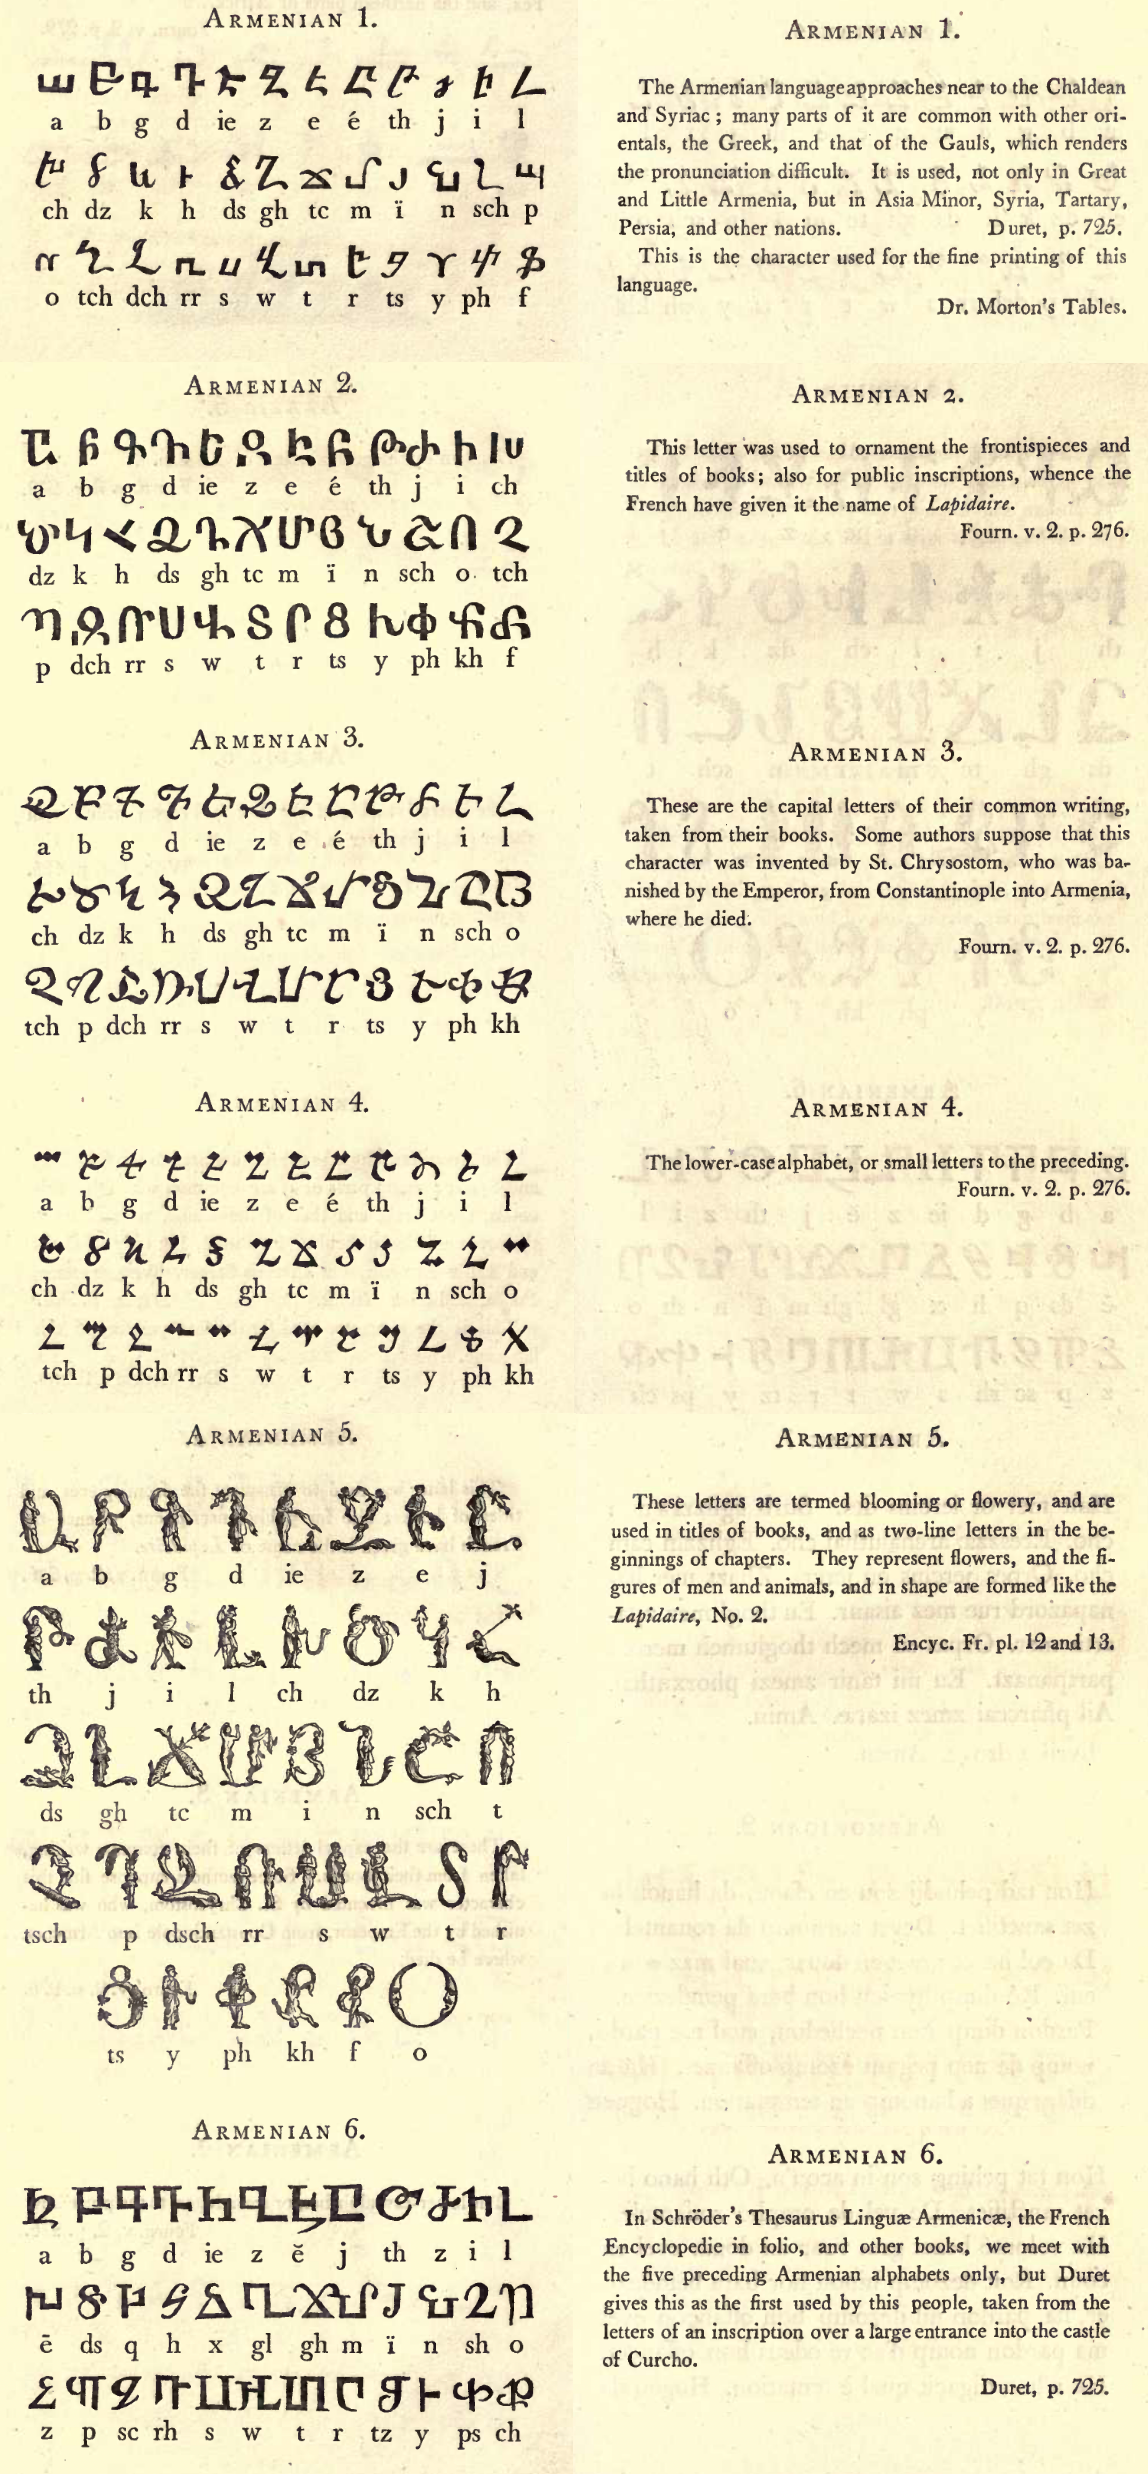 ARMENIAN 1.
ա բ գ դ ե զ է ը թ ժ ի լ
a b g d ie z e é th j i l
խ ծ կ հ ձ ղ ճ մ յ ն շ պ
ch dz k h ds gh tc m ï n sch p
ո չ ջ ռ ս վ տ ր ց ւ փ ֆ
o tch dch rr s w t r ts y ph f
ARMENIAN 1.
The Armenian language approaches near to the Chaldean
and Syriac ; many parts of it are common with other ori-
entals, the Greek, and that of the Gauls, which renders
the pronunciation difficult. It is used, not only in Great
and Little Armenia, but in Asia Minor, Syria, Tartary,
Persia, and other nations. Duret, p. 725.
This is the character used for the fine printing of this
language.
Dr. Morton's Tables.
ARMENIAN 2.
Ա Բ Գ Դ Ե Զ Է Ը Թ Ժ Ի Խ
a b g d ie z e é th j i ch
Ծ Կ Հ Ձ Ղ Ճ Մ Յ Ն Շ Ո Չ
dz k h ds gh tc m ï n sch o tch
Պ Ջ Ռ Ս Վ Տ Ր Ց Ւ Փ Ք Ֆ
p dch rr s w t r ts y ph kh f
ARMENIAN 2.
This letter was used to ornament the frontispieces and
titles of books; also for public inscriptions, whence the
French have given it the name of Lapidaire.
Fourn. v. 2. p. 276.
ARMENIAN 3.
Ա Բ Գ Դ Ե Զ Է Ը Թ Ժ Ի Լ
a b g d ie z e é th j i l
Խ Ծ Կ Հ Ձ Ղ Ճ Մ Յ Ն Շ Ո
ch dz k h ds gh tc m ï n sch o
Չ Պ Ջ Ռ Ս Վ Տ Ր Ց Ւ Փ Ք
tch p dch rr s w t r ts y ph kh
ARMENIAN 3.
These are the capital letters of their common writing,
taken from their books. Some authors suppose that this
character was invented by St. Chrysostom, who was ba-
nished by the Emperor, from Constantinople into Armenia,
where he died.
Fourn. v. 2. p. 276.
ARMENIAN 4.
ա բ գ դ ե զ է ը թ ժ ի լ
a b g d ie z e é th j i l
խ ծ կ հ ձ ղ ճ մ յ ն շ ո
ch dz k h ds gh tc m ï n sch o
չ պ ջ ռ ս վ տ ր ց ւ փ ք
tch p dch rr s w t r ts y ph kh
ARMENIAN 4.
The lower-case alphabet, or small letters to the preceding.
Fourn. v. 2. p. 276.
ARMENIAN 5.
Ա Բ Գ Դ Ե Զ Է Ը
a b g d ie z e j
Թ Ժ Ի Լ Խ Ծ Կ Հ
th j i l ch dz k h
Ձ Ղ Ճ Մ Յ Ն Շ Ո
ds gh tc m i n sch t
Չ Պ Ջ Ռ Ս Վ Տ Ր
tsch p dsch rr s w t r
Ց Ւ Փ Ք Ֆ Օ
ts y ph kh f o
ARMENIAN 5.
These letters are termed blooming or flowery, and are
used in titles of books, and as two-line letters in the be-
ginnings of chapters. They represent flowers, and the fi-
gures of men and animals, and in shape are formed like the
Lapidaire, No. 2.
Encyc. Fr. pl. 12 and 13.
ARMENIAN 6.
Ա Բ Գ Դ Ե Զ Է Ը Թ Ժ Ի Լ
a b g d ie z ĕ j th z i l
Խ Ծ Կ Հ Ձ Ղ Ճ Մ Յ Ն Շ Ո
ē ds q h x gl gh m ï n sh o
Չ Պ Ջ Ռ Ս Վ Տ Ր Ց Ւ Փ Ք
z p sc rh s w t r tz y ps ch
ARMENIAN 6.
In Schröder's Thesaurus Linguæ Armenicæ, the French
Encyclopedie in folio, and other books, we meet with
the five preceding Armenian alphabets only, but Duret
gives this as the first used by this people, taken from the
letters of an inscription over a large entrance into the castle
of Curcho.
Duret, p. 725.